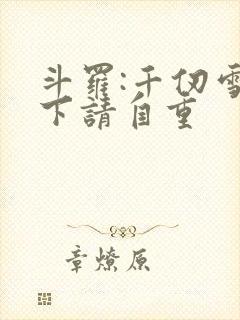 斗羅:千仞雪
下請自重
章燎原